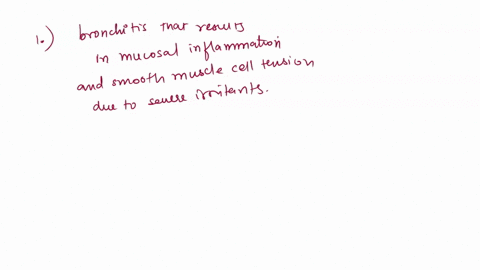 1.) bronchitis that results
in mucosal inflammation
and smooth muscle cell tension
due to severe irritants.